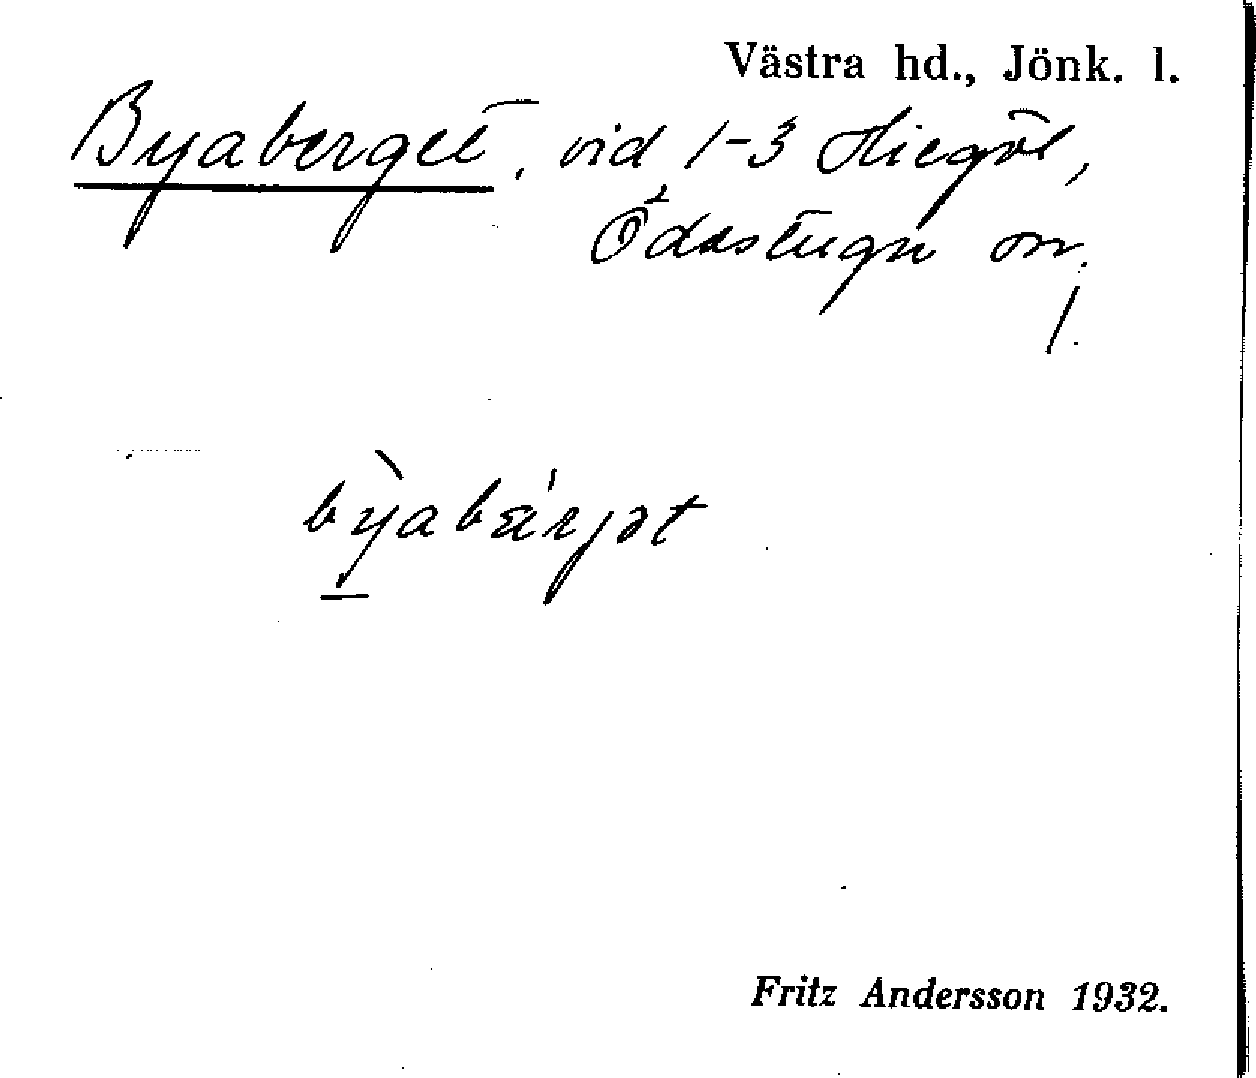 Västra hd., Jönk. l.
Byaberget, vid 1-3 Hiegöl,
Ödestugu sn.
/.
bỳabǽrjət
Fritz Andersson 1932.